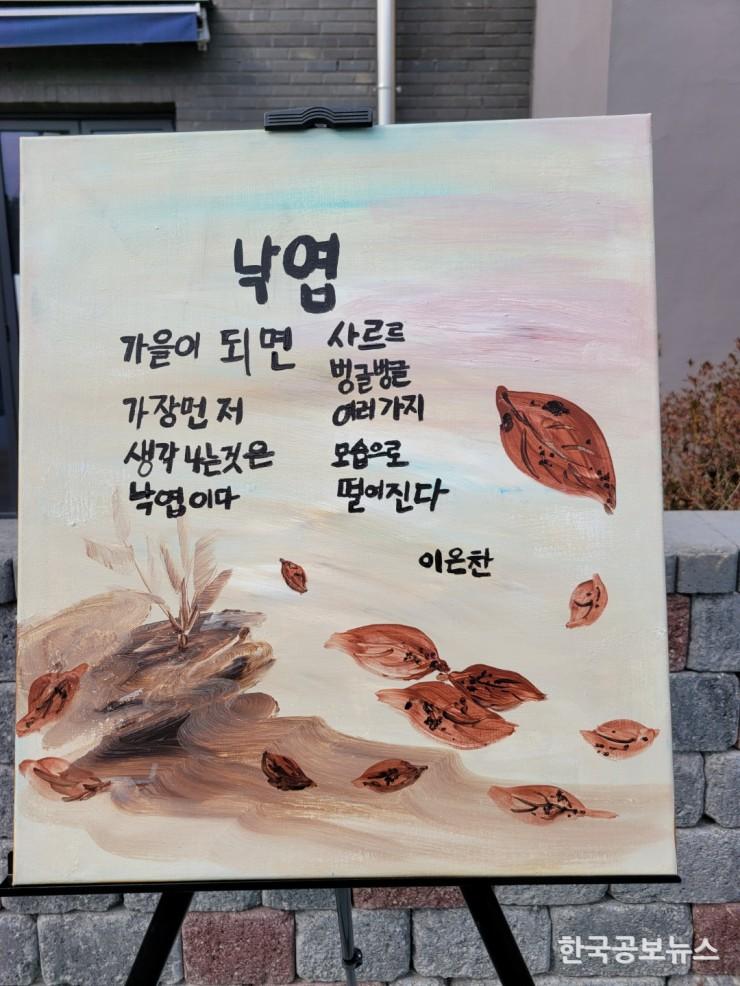 낙엽
가을이 되면
가장먼저
생각 나는것은
낙엽이다
사르르
벙글벙글
여러가지
모습으로
떨어진다
이은찬
한국공보뉴스